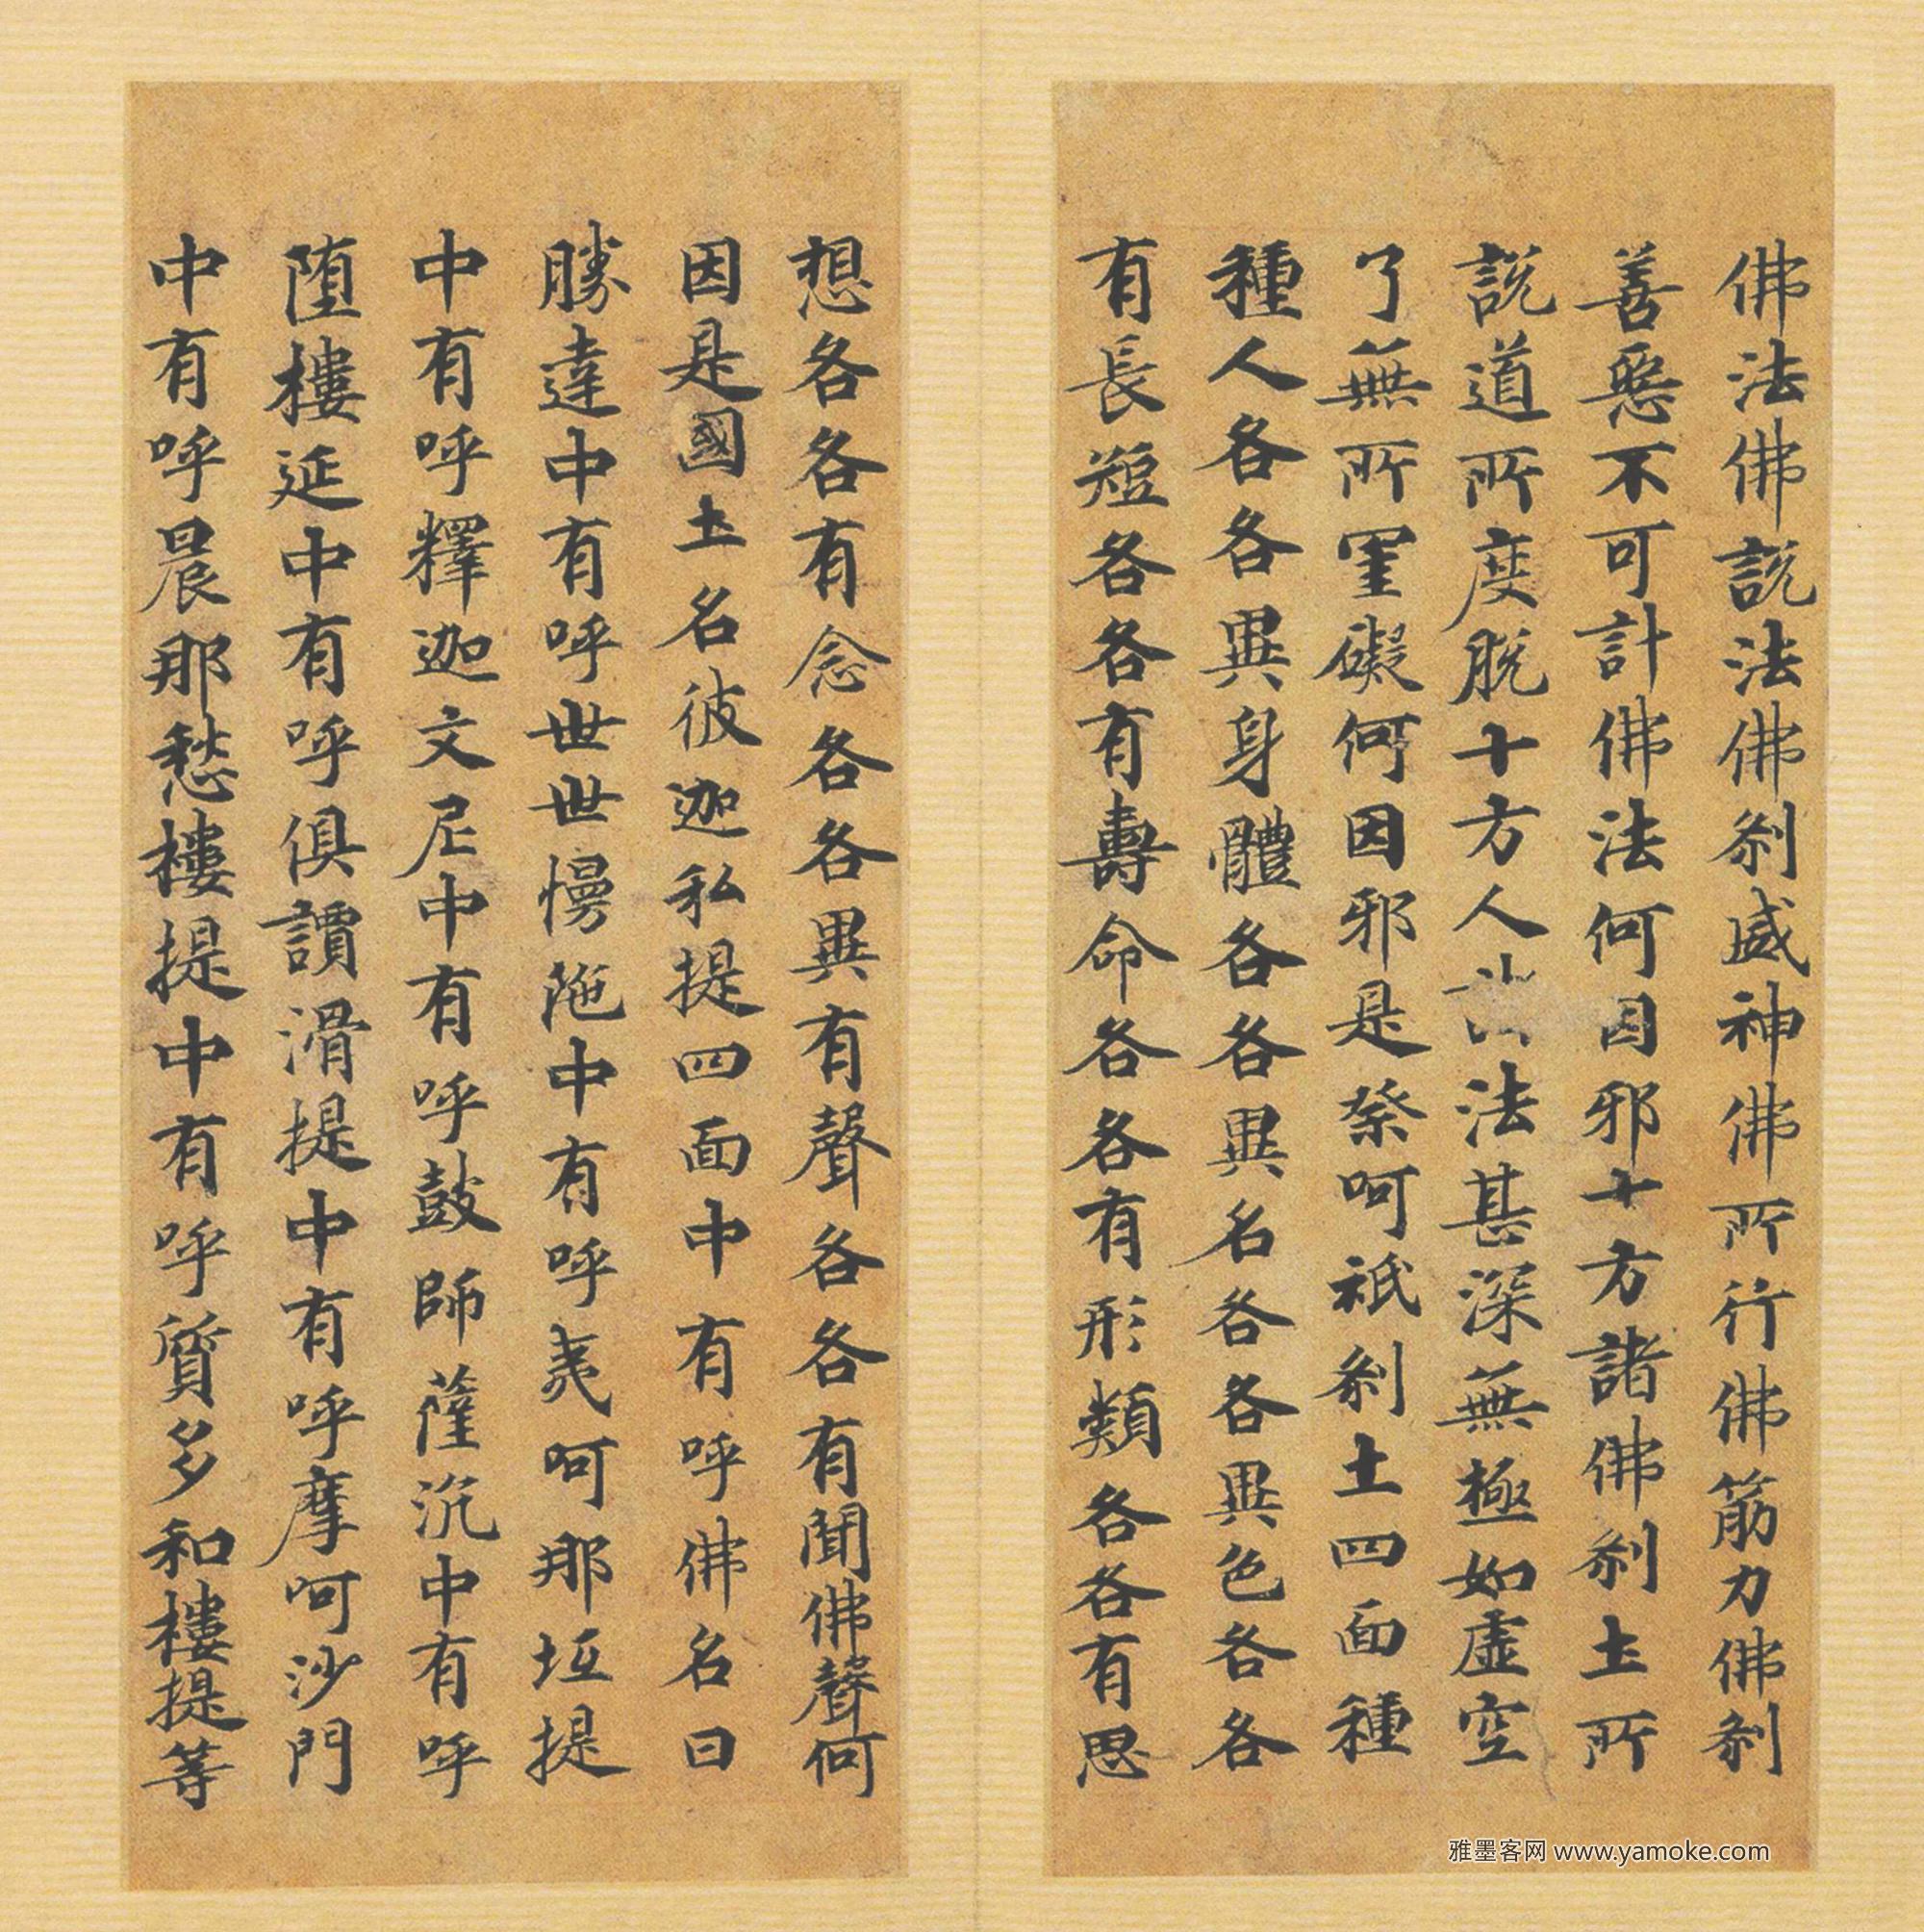 佛法佛說法佛剎威神佛所行佛筋力佛剎
善惡不可計佛法何因邪十方諸佛剎土所
說道所度脫十方人法甚深無極如虛空
了無所罣礙何因邪是祭呵祇剎土四面種
種人各各異身體各各異名各各異色各各
有長短各各有壽命各各有形類各各有思
想各各有念各各異有聲各各有聞佛聲何
因是國土名彼迦私提四面中有呼佛名曰
勝達中有呼世世慢陁中有呼夷呵那坘提
中有呼釋迦文尼中有呼鼓師薩沉中有呼
堕樓延中有呼俱讀滑提中有呼摩呵沙門
中有呼晨那愁樓提中有呼質多和樓提等
雅墨客网 www.yamoke.com